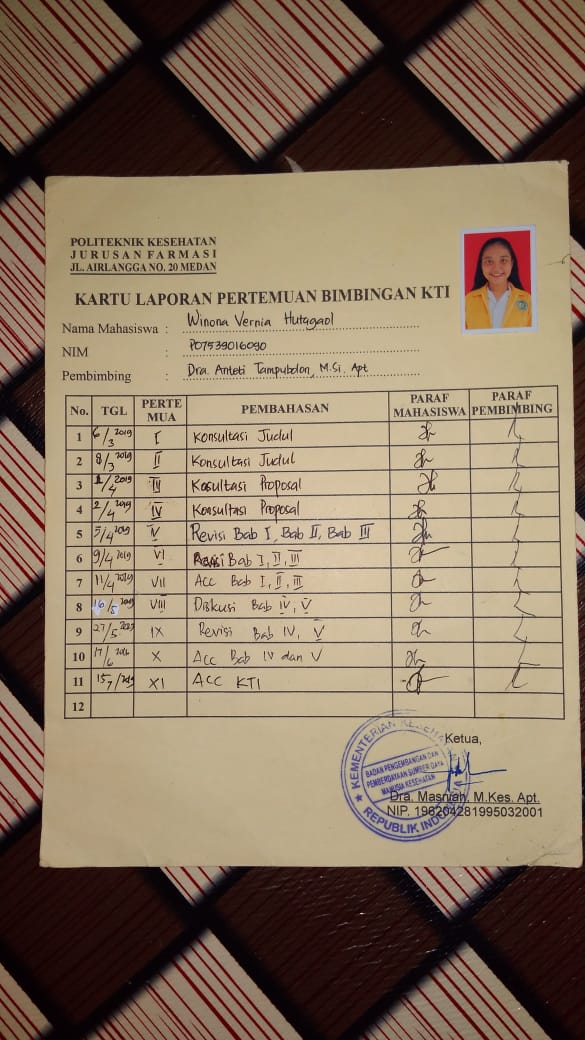 POLITEKNIK KESEHATAN
JURUSAN FARMASI
JL. AIRLANGGA NO. 20 MEDAN
KARTU LAPORAN PERTEMUAN BIMBINGAN KTI
Nama Mahasiswa : Winona Vernia Hutagaol
NIM : P07539016090
Pembimbing : Dra. Anteti Tampubolon, M.Si, Apt
No. TGL PERTE MUA PEMBAHASAN PARAF MAHASISWA PARAF PEMBIMBING
1 6/3 2019 I Konsultasi Judul
2 8/3 2019 II Konsultasi Judul
3 /4 2019 III Kosultasi Proposal
4 2/4 2019 IV Kosultasi Proposal
5 5/4 2019 V Revisi Bab I, Bab II, Bab III
6 9/4 2019 VI Revisi Bab I, II, III
7 11/4 2019 VII Acc Bab I, II, III
8 16/5 2019 VIII Diskusi Bab IV, V
9 27/5 2019 IX Revisi Bab IV, V
10 17/6 X Acc Bab IV dan V
11 15/7/2019 XI Acc KTI
12
Ketua,
KEMENTERIAN KESEHA
BADAN PENGEMBANGAN DAN
PEMBERDAYAAN SUMBER DAYA
MANUSIA KESEHATAN
REPUBLIK INDO
Dra. Masniah, M.Kes. Apt.
NIP. 196204281995032001